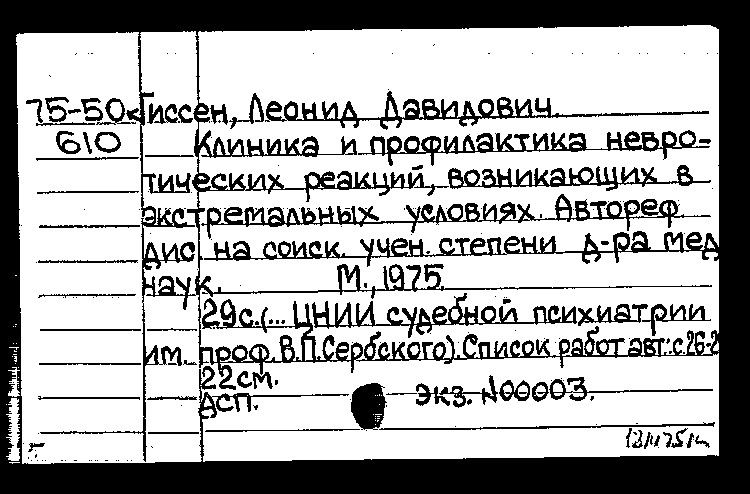 75-50к Гиссен, Леонид Давидович.
610 Клиника и профилактика невро-
тических реакций, возникающих в
экстремальных условиях. Автореф
дис. на соиск. учен. степени д-ра мед
наук. М., 1975.
29с. (... ЦНИИ судебной психиатрии
им. проф. В.П.Сербского). Список работ авт.: с.26-2
22см.
АСП. Экз. №00003.